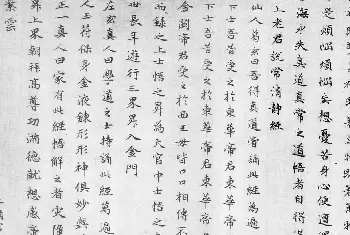 是煩惱煩惱妄想憂苦身心便遭
海永失真道真常之道悟者自得
上老君說常清靜經
仙人葛玄曰吾得真道嘗誦此經萬遍
下士吾昔受之於東華帝君東華帝
金闕帝君受之於西王母皆口口相傳不
而錄之上士悟之昇為天官中士悟之
世長年遊行三界昇入金門
左玄真人曰學道之士持誦此經萬遍
人王將保身金液鍊形形神俱妙與
正一真人曰家有此經悟解之者災障
昇上界朝拜高尊功滿德就想感帝
紫雲